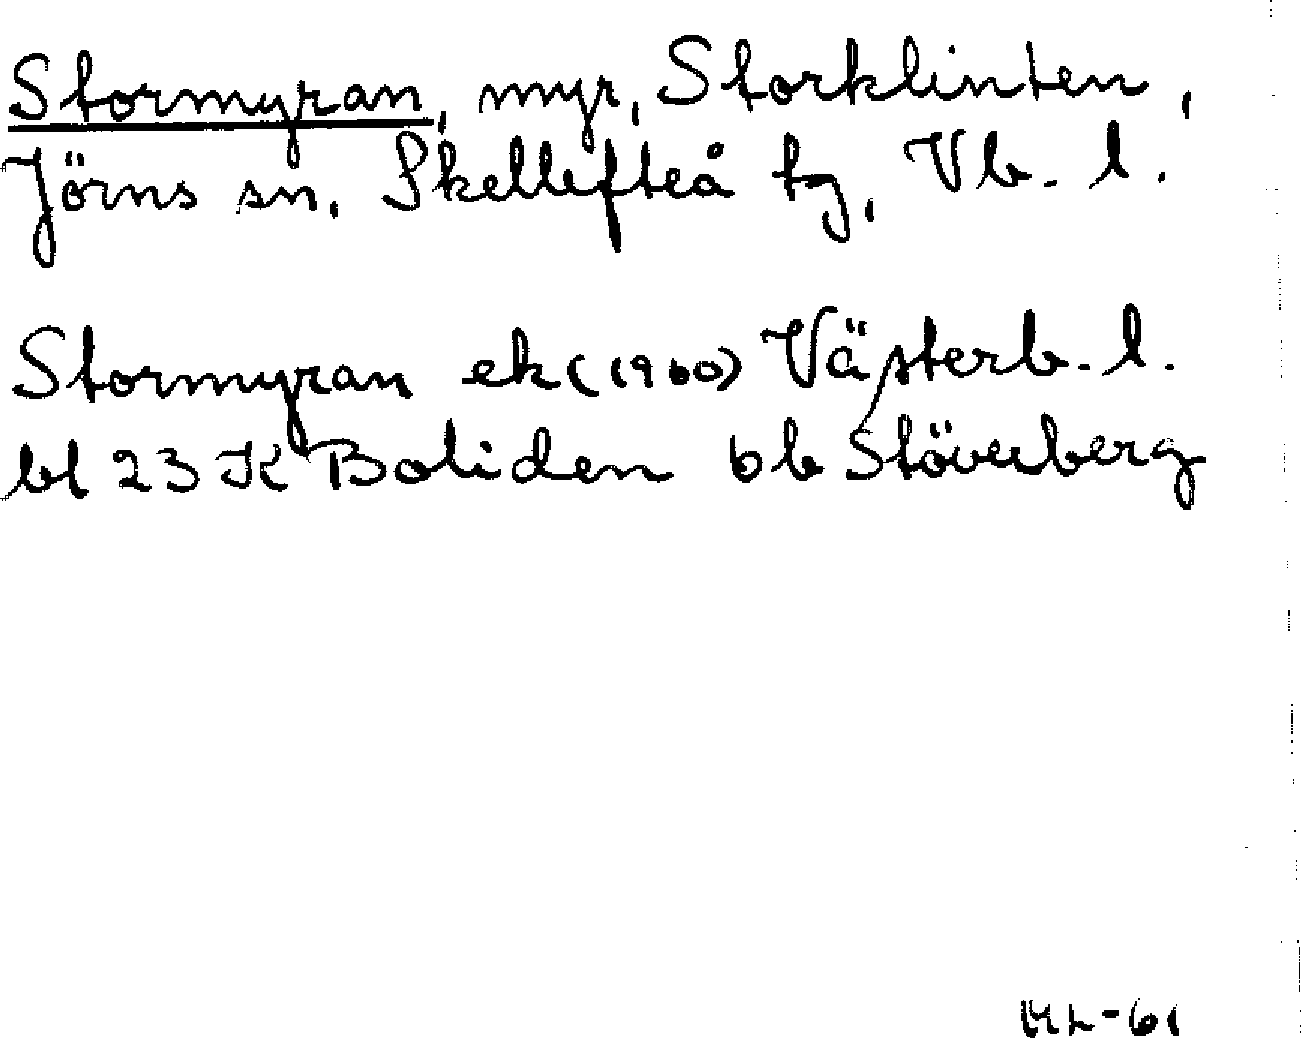 Stormyran, myr, Storklinten,
Jörns sn, Skellefteå tg, Vb. l.
Stormyran ek (1960) Västerb. l.
bl 23 K Boliden bb Stöverberg
ML-61